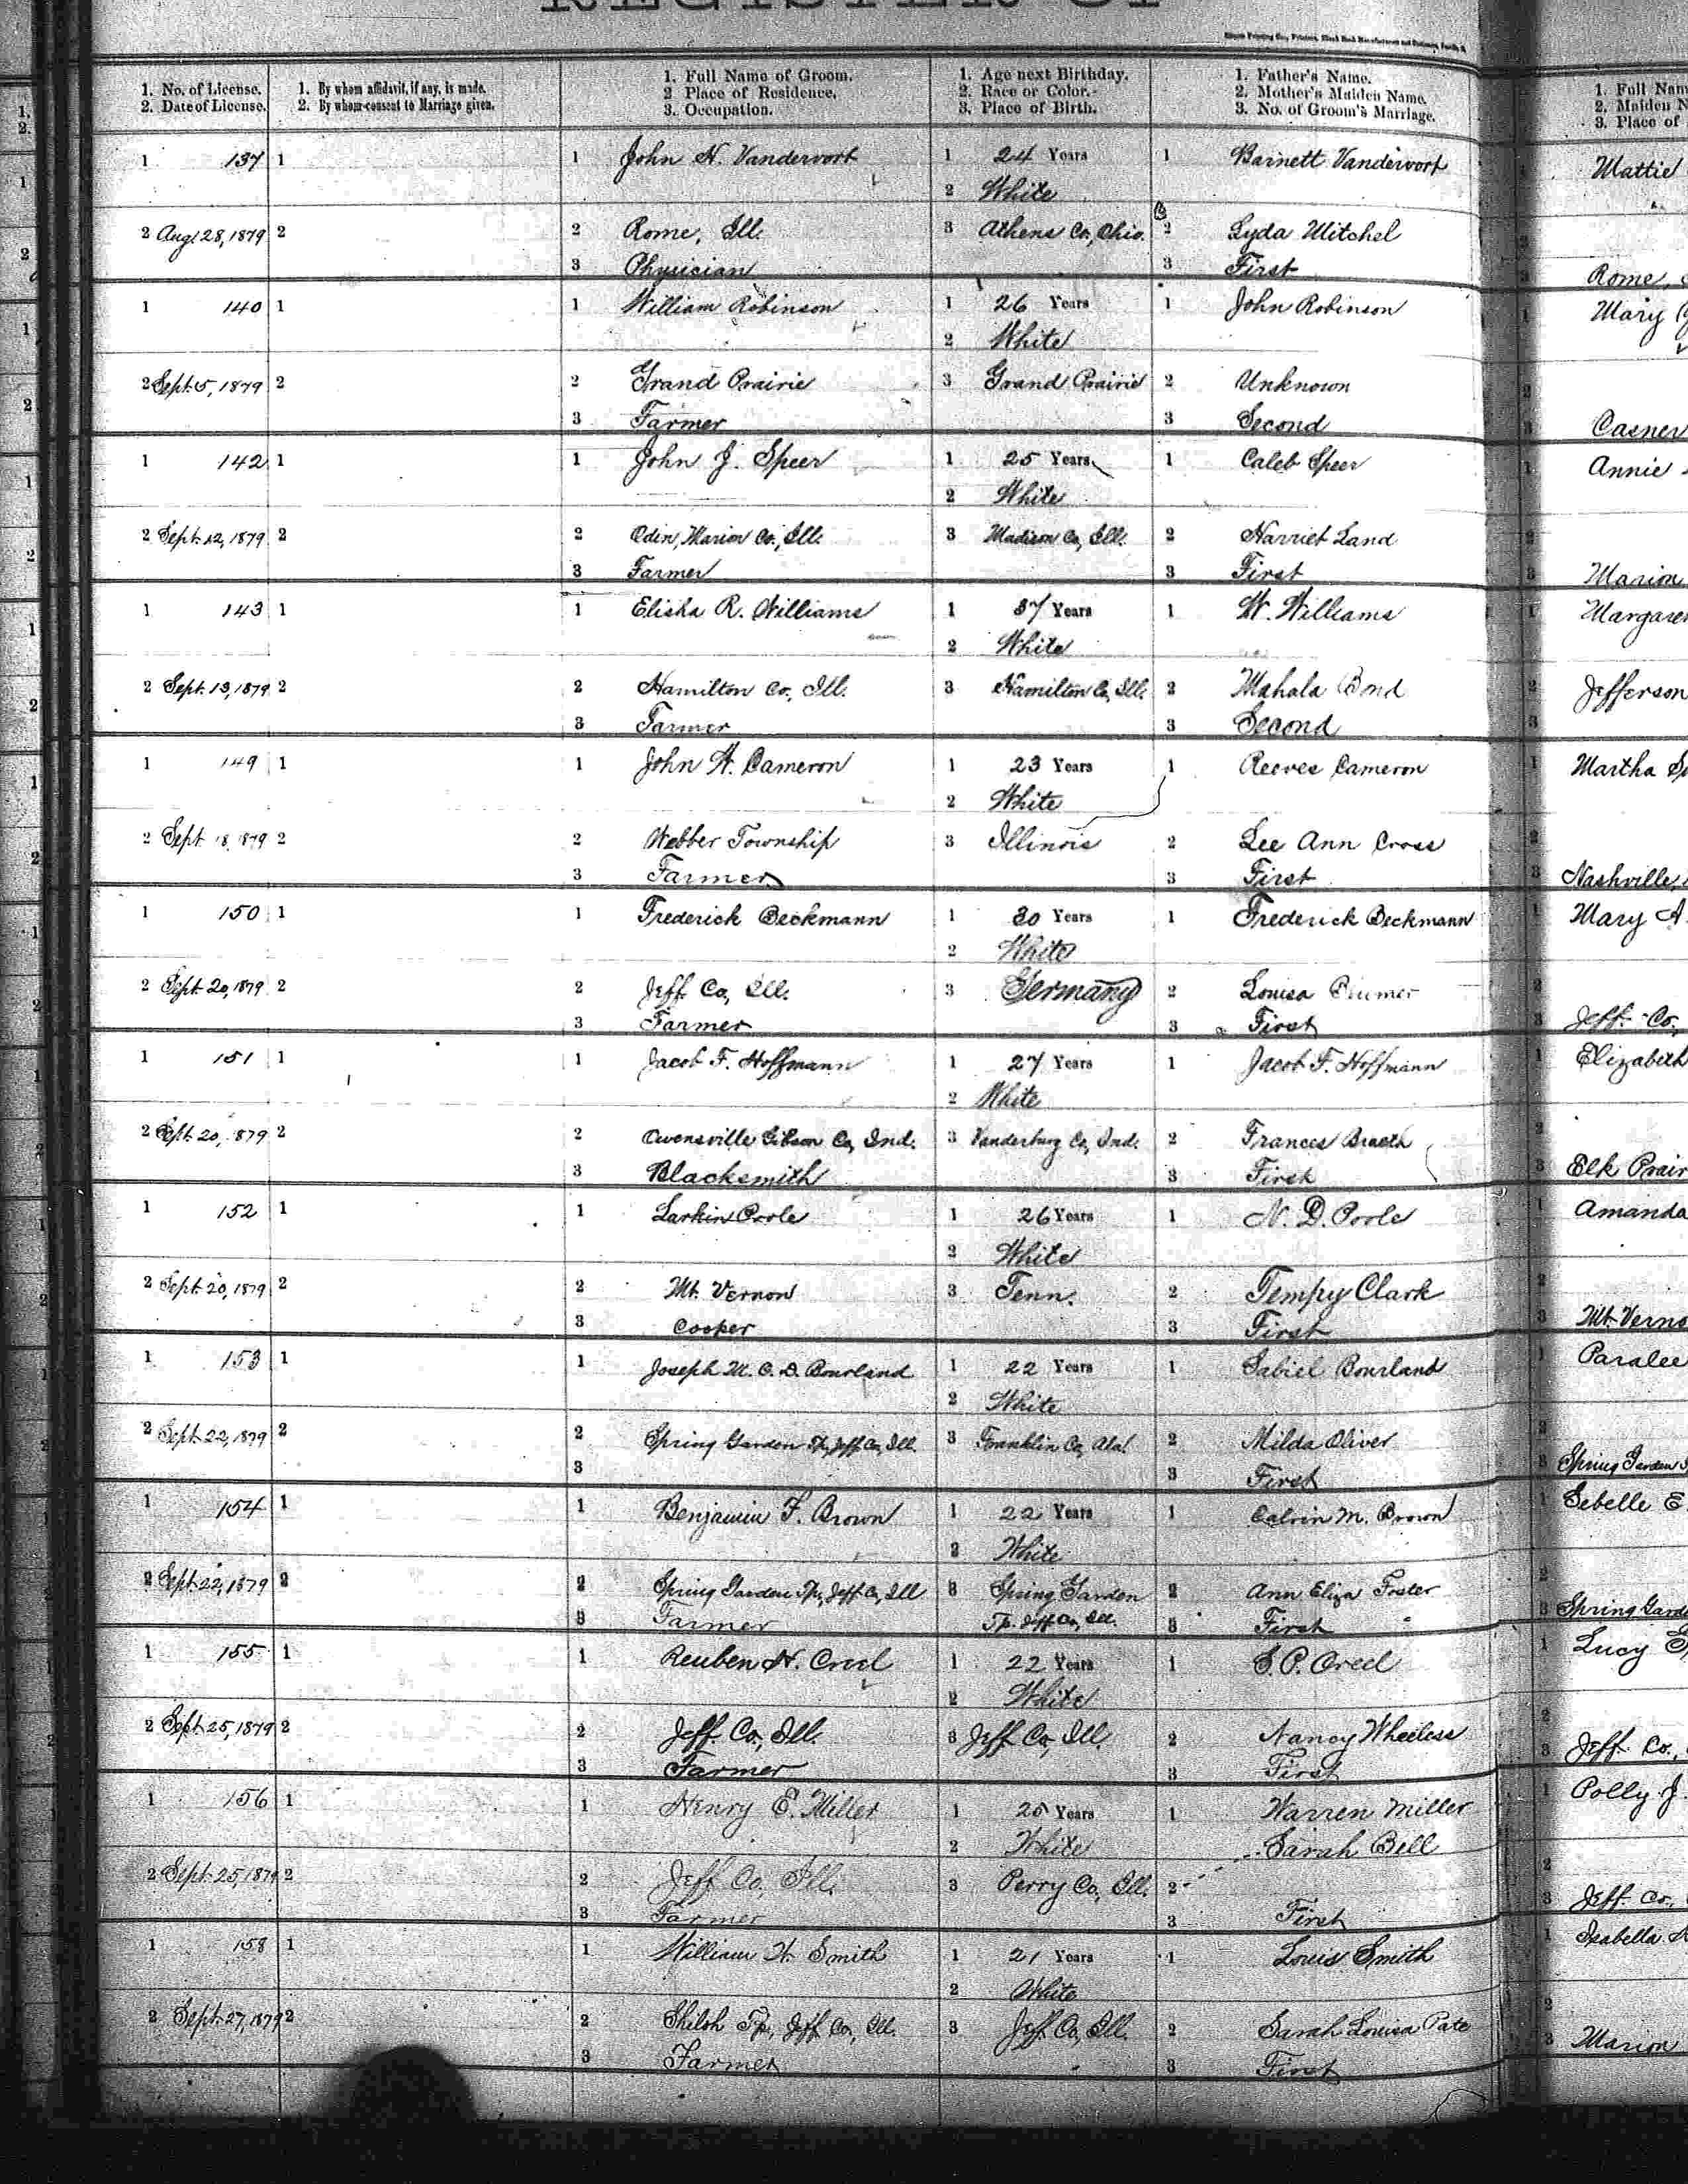 REGISTER OF
1. No. of License. 1. By whom affidavit, if any, is made. 1. Full Name of Groom. 1. Age next Birthday. 1. Father's Name. 1. Full Nam
2. Date of License. 2. By whom consent to Marriage given. 2 Place of Residence. 2. Race or Color. 2. Mother's Maiden Name. 2. Maiden N
3. Occupation. 3. Place of Birth. 3. No. of Groom's Marriage. 3. Place of
1 137 1 1 John H. Vandervort 1 24 Years 1 Barnett Vandervort Mattie
2 White
2 Aug 28, 1879 2 2 Rome, Ill. 3 Athens Co, Ohio. 2 Lyda Mitchel
3 Physician 3 First Rome,
1 140 1 1 William Robinson 1 26 Years 1 John Robinson Mary
2 White
2 Sept. 5, 1879 2 2 Grand Prairie 3 Grand Prairie 2 Unknown
3 Farmer 3 Second Casner
1 142 1 1 John J. Speer 1 25 Years 1 Caleb Speer Annie
2 White
2 Sept. 12, 1879 2 2 Odin, Marion Co., Ill. 3 Madison Co, Ill. 2 Harriet Land
3 Farmer 3 First Marion
1 143 1 1 Elisha R. Williams 1 37 Years 1 W. Williams Margaret
2 White
2 Sept. 13, 1879 2 2 Hamilton Co, Ill. 3 Hamilton Co, Ill. 2 Mahala Bond 2 Jefferson
3 Farmer 3 Second 3
1 149 1 1 John W. Cameron 1 23 Years 1 Reeves Cameron 1 Martha
2 White
2 Sept. 18, 1879 2 2 Webber Township 3 Illinois 2 Lee Ann Cross 2
3 Farmer 3 First 3 Nashville,
1 150 1 1 Frederick Beckmann 1 30 Years 1 Frederick Beckmann Mary A.
2 White
2 Sept. 20, 1879 2 2 Jeff Co, Ill. 3 Germany 2 Louisa
3 Farmer 3 First 3 Jeff. Co,
1 151 1 1 Jacob F. Hoffmann 1 27 Years 1 Jacob F. Hoffmann 1 Elizabeth
2 White
2 Sept. 20, 1879 2 2 Owensville Gibson Co, Ind. 3 Vanderburg Co, Ind. 2 Frances
3 Blacksmith 3 First 3 Elk Prair
1 152 1 1 Larkin Poole 1 26 Years 1 N. D. Poole 1 Amanda
2 White
2 Sept. 20, 1879 2 2 Mt. Vernon 3 Tenn. 2 Tempy Clark 2
3 Cooper 3 First 3 Mt. Verno
1 153 1 1 Joseph M. C. D. Bourland 1 22 Years 1 Gabriel Bourland 1 Paralee
2 White
2 Sept. 22, 1879 2 2 Spring Garden Tp, Jeff Co, Ill. 3 Franklin Co, Ala. 2 Milda Oliver 2
3 3 First 3 Spring Garden
1 154 1 1 Benjamin F. Brown 1 22 Years 1 Calvin M. Brown 1 Sebelle E.
2 White
2 Sept. 22, 1879 2 2 Spring Garden Tp, Jeff Co, Ill 3 Spring Garden 2 Ann Eliza Foster 2
3 Farmer Tp. Jeff Co, Ill. 3 First 3 Spring Garde
1 155 1 1 Reuben H. Creel 1 22 Years 1 S. P. Creel 1 Lucy
2 White
2 Sept. 25, 1879 2 2 Jeff. Co., Ill. 3 Jeff Co, Ill. 2 Nancy Wheeless 2
3 Farmer 3 First 3 Jeff. Co.,
1 156 1 1 Henry E. Miller 1 25 Years 1 Warren Miller 1 Polly J.
2 White Sarah Bell
2 Sept. 25, 1879 2 2 Jeff Co, Ill. 3 Perry Co, Ill. 2 2
3 Farmer 3 First 3 Jeff. Co.,
1 158 1 1 William H. Smith 1 21 Years 1 Louis Smith 1 Isabella
2 White
2 Sept. 27, 1879 2 2 Shiloh Tp., Jeff Co, Ill. 3 Jeff Co, Ill. 2 Sarah Louisa Pate 2
3 Farmer 3 First 3 Marion